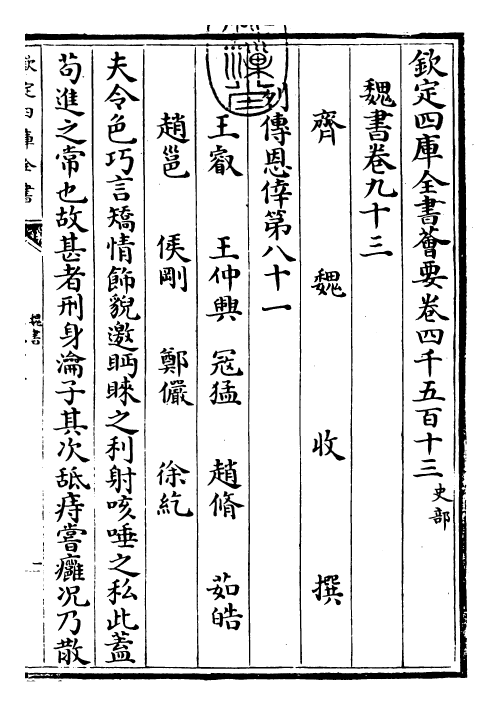 欽定四庫全書薈要卷四千五百十三 史部
魏書卷九十三
齊 魏 收 撰
列傳恩倖第八十一
王叡 王仲興 冦猛 趙脩 茹皓
趙邕 侯剛 鄭儼 徐紇
夫令色巧言矯情飾貌邀眄睞之利射咳唾之私此蓋
茍進之常也故甚者刑身瀹子其次舐痔嘗癰况乃散
欽定四庫全書
魏書
一